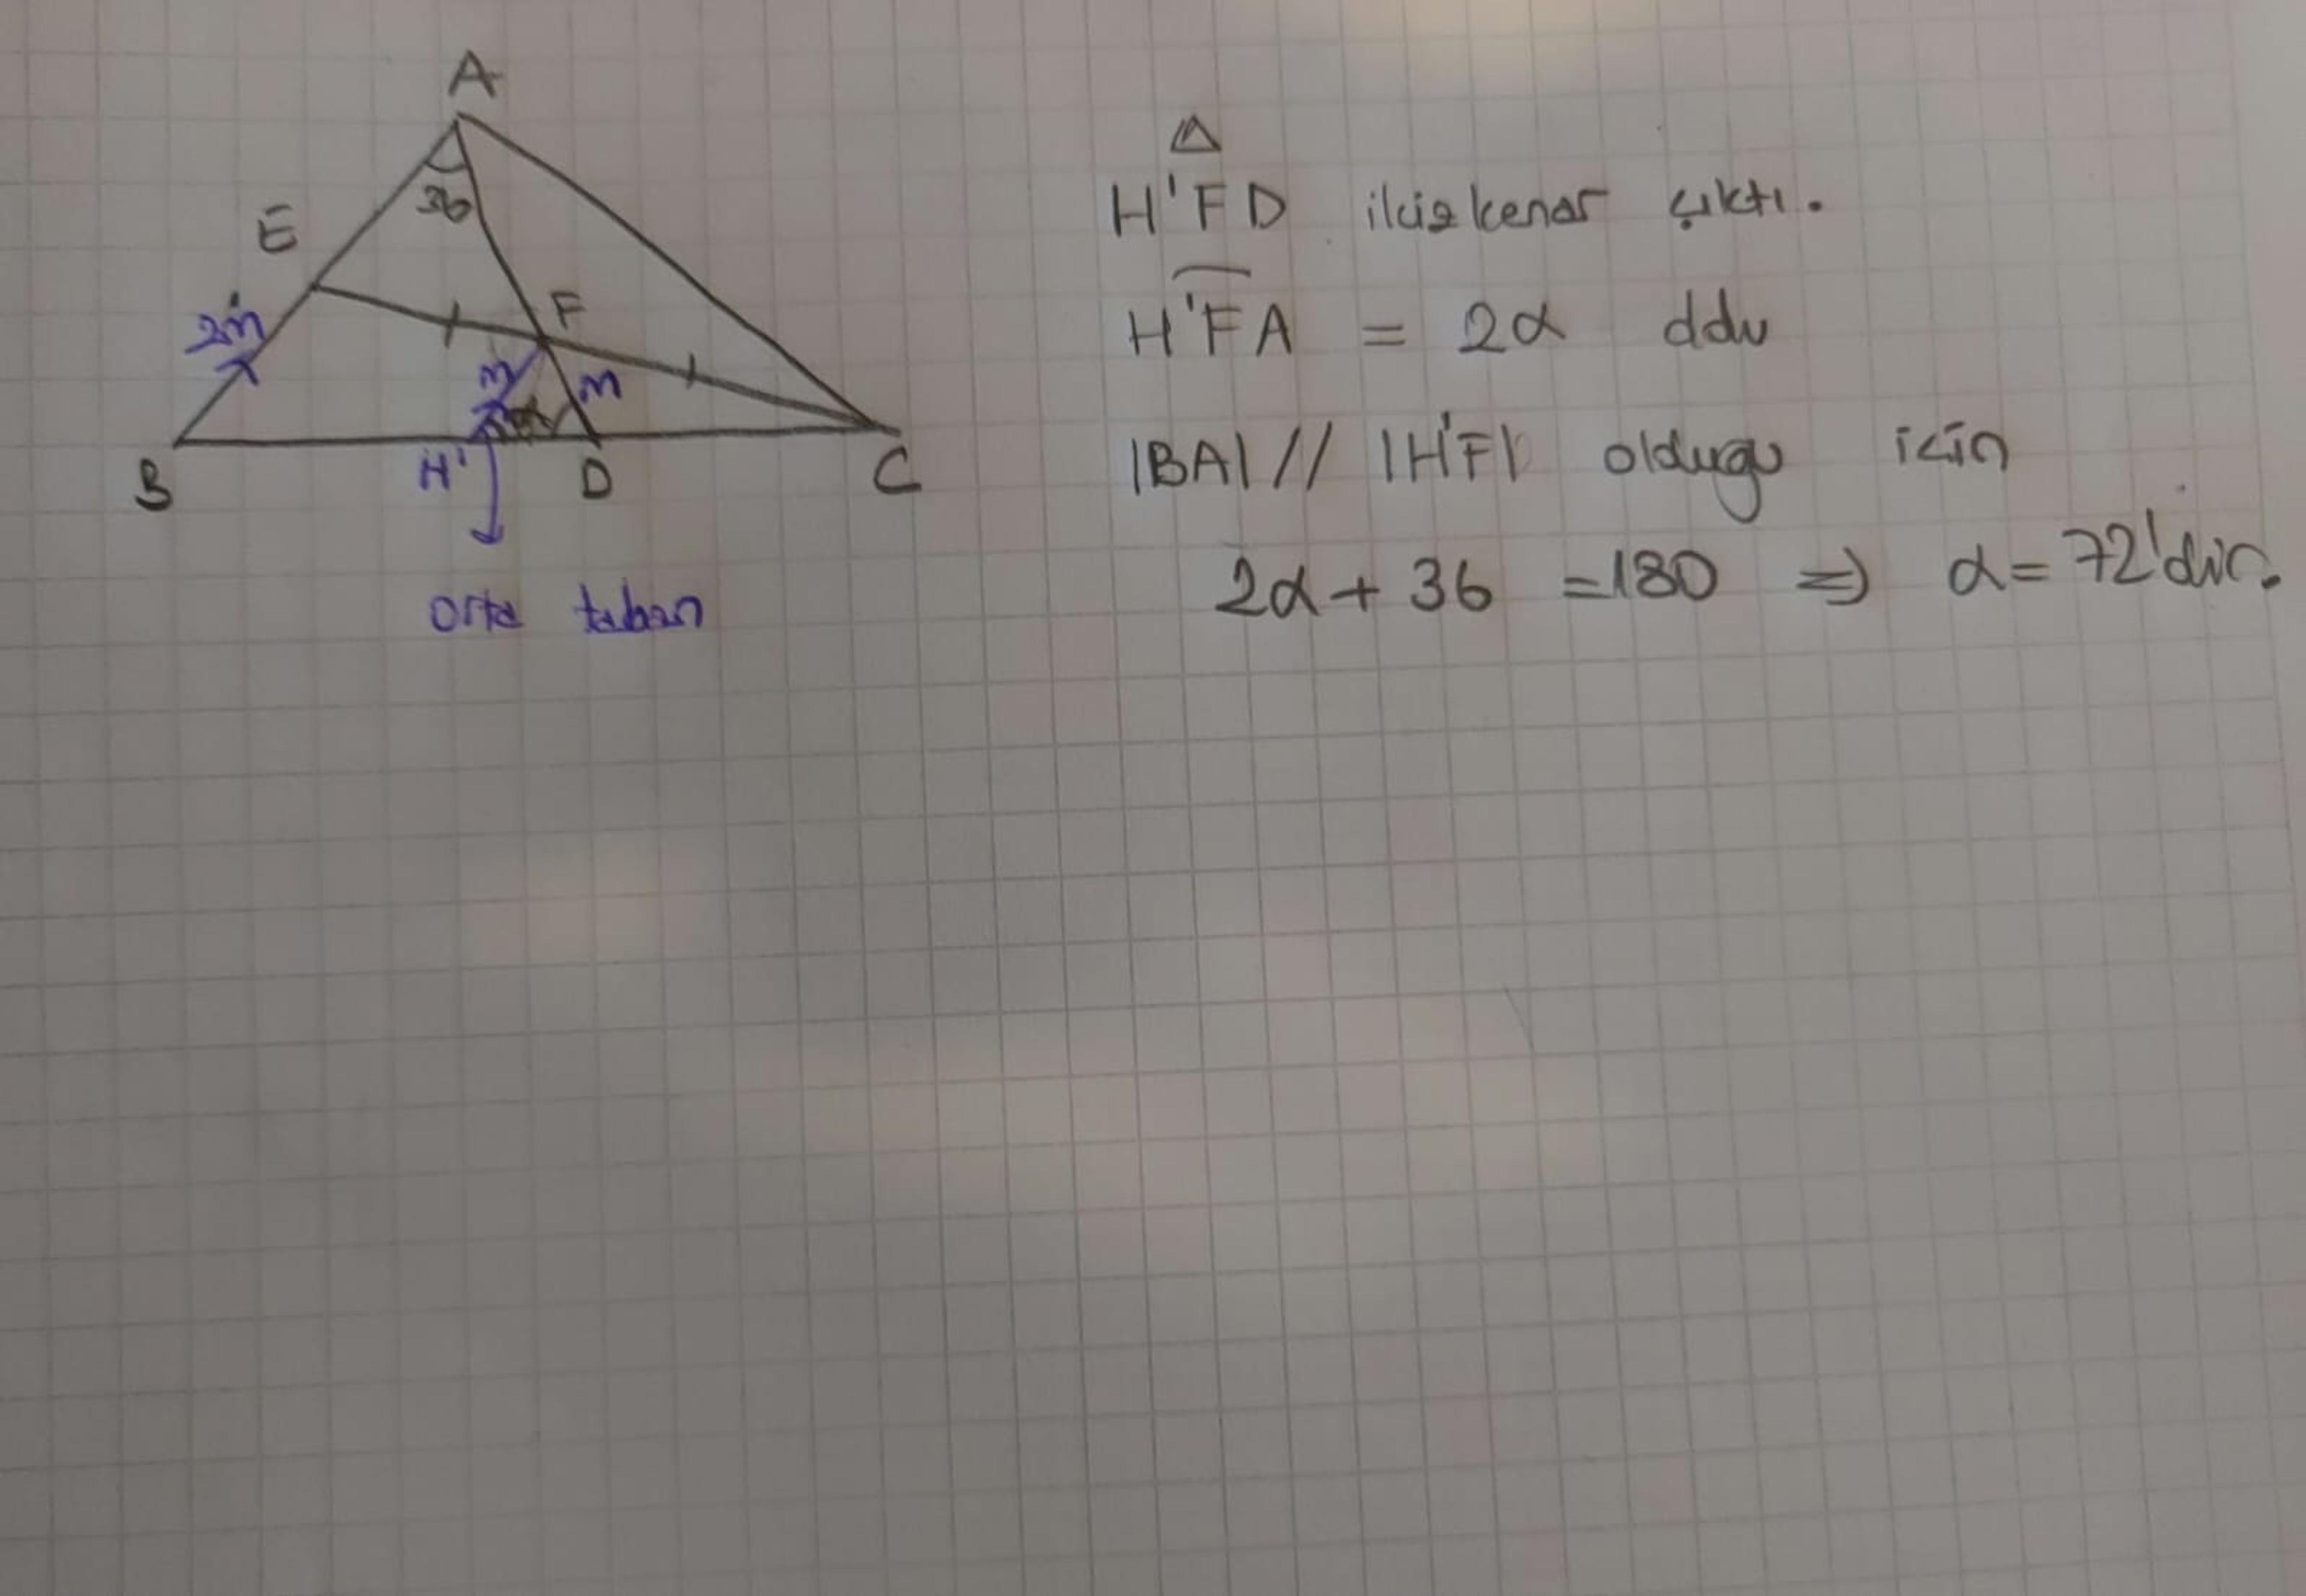 A
36
E
F
2m
m
m
α
B
H'
D
C
orta taban
△
H'FD ikizkenar çıktı.
H'FA = 2α ddu
|BA| // |H'F| olduğu için
2α + 36 = 180 ⇒ α = 72'dir.